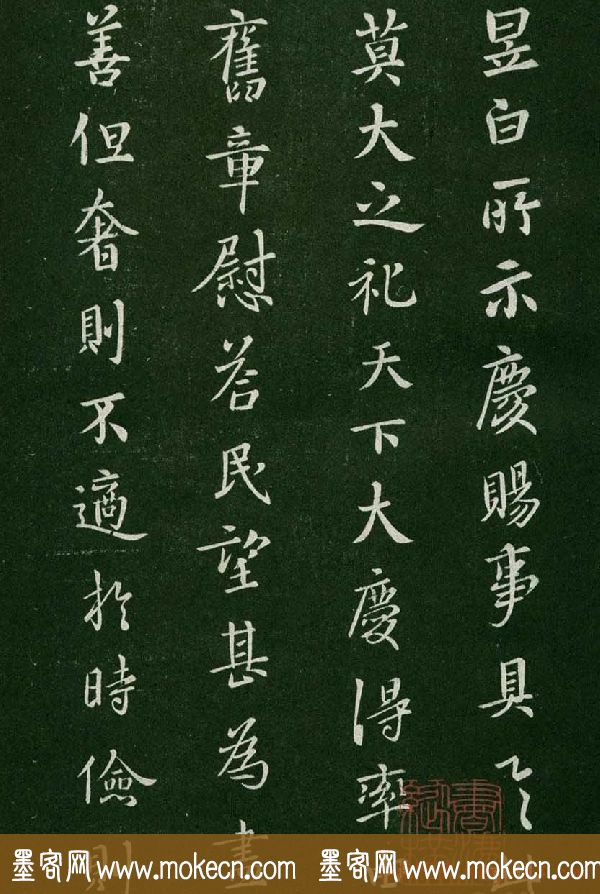 昱白所示慶賜事具
莫大之祀天下大慶得率
舊章慰荅民望甚為盡
善但奢則不適於時儉則
墨客网 www.mokecn.com 墨客网 www.mokecn.com